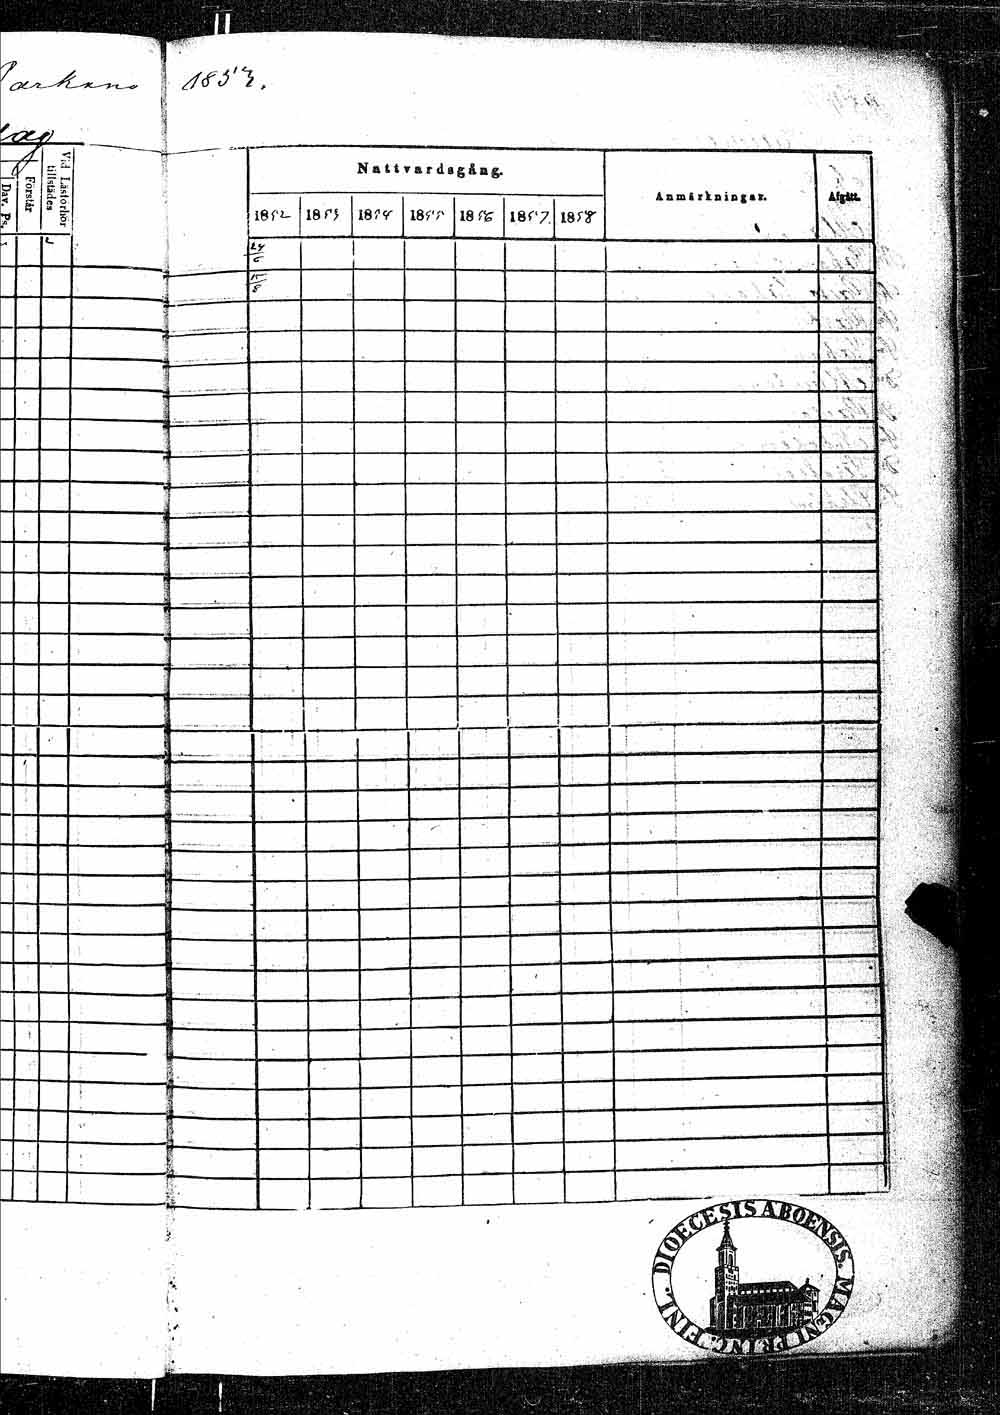 Parkano 1853.
Vid Läsförhör tillstädes
Förstår
Dav. Ps.
Nattvardsgång.
Anmärkningar.
Afgått.
1852 1853 1854 1855 1856 1857. 1858
24/6
DIOECESIS ABOENSIS. MAGNI PRINC. FINL.